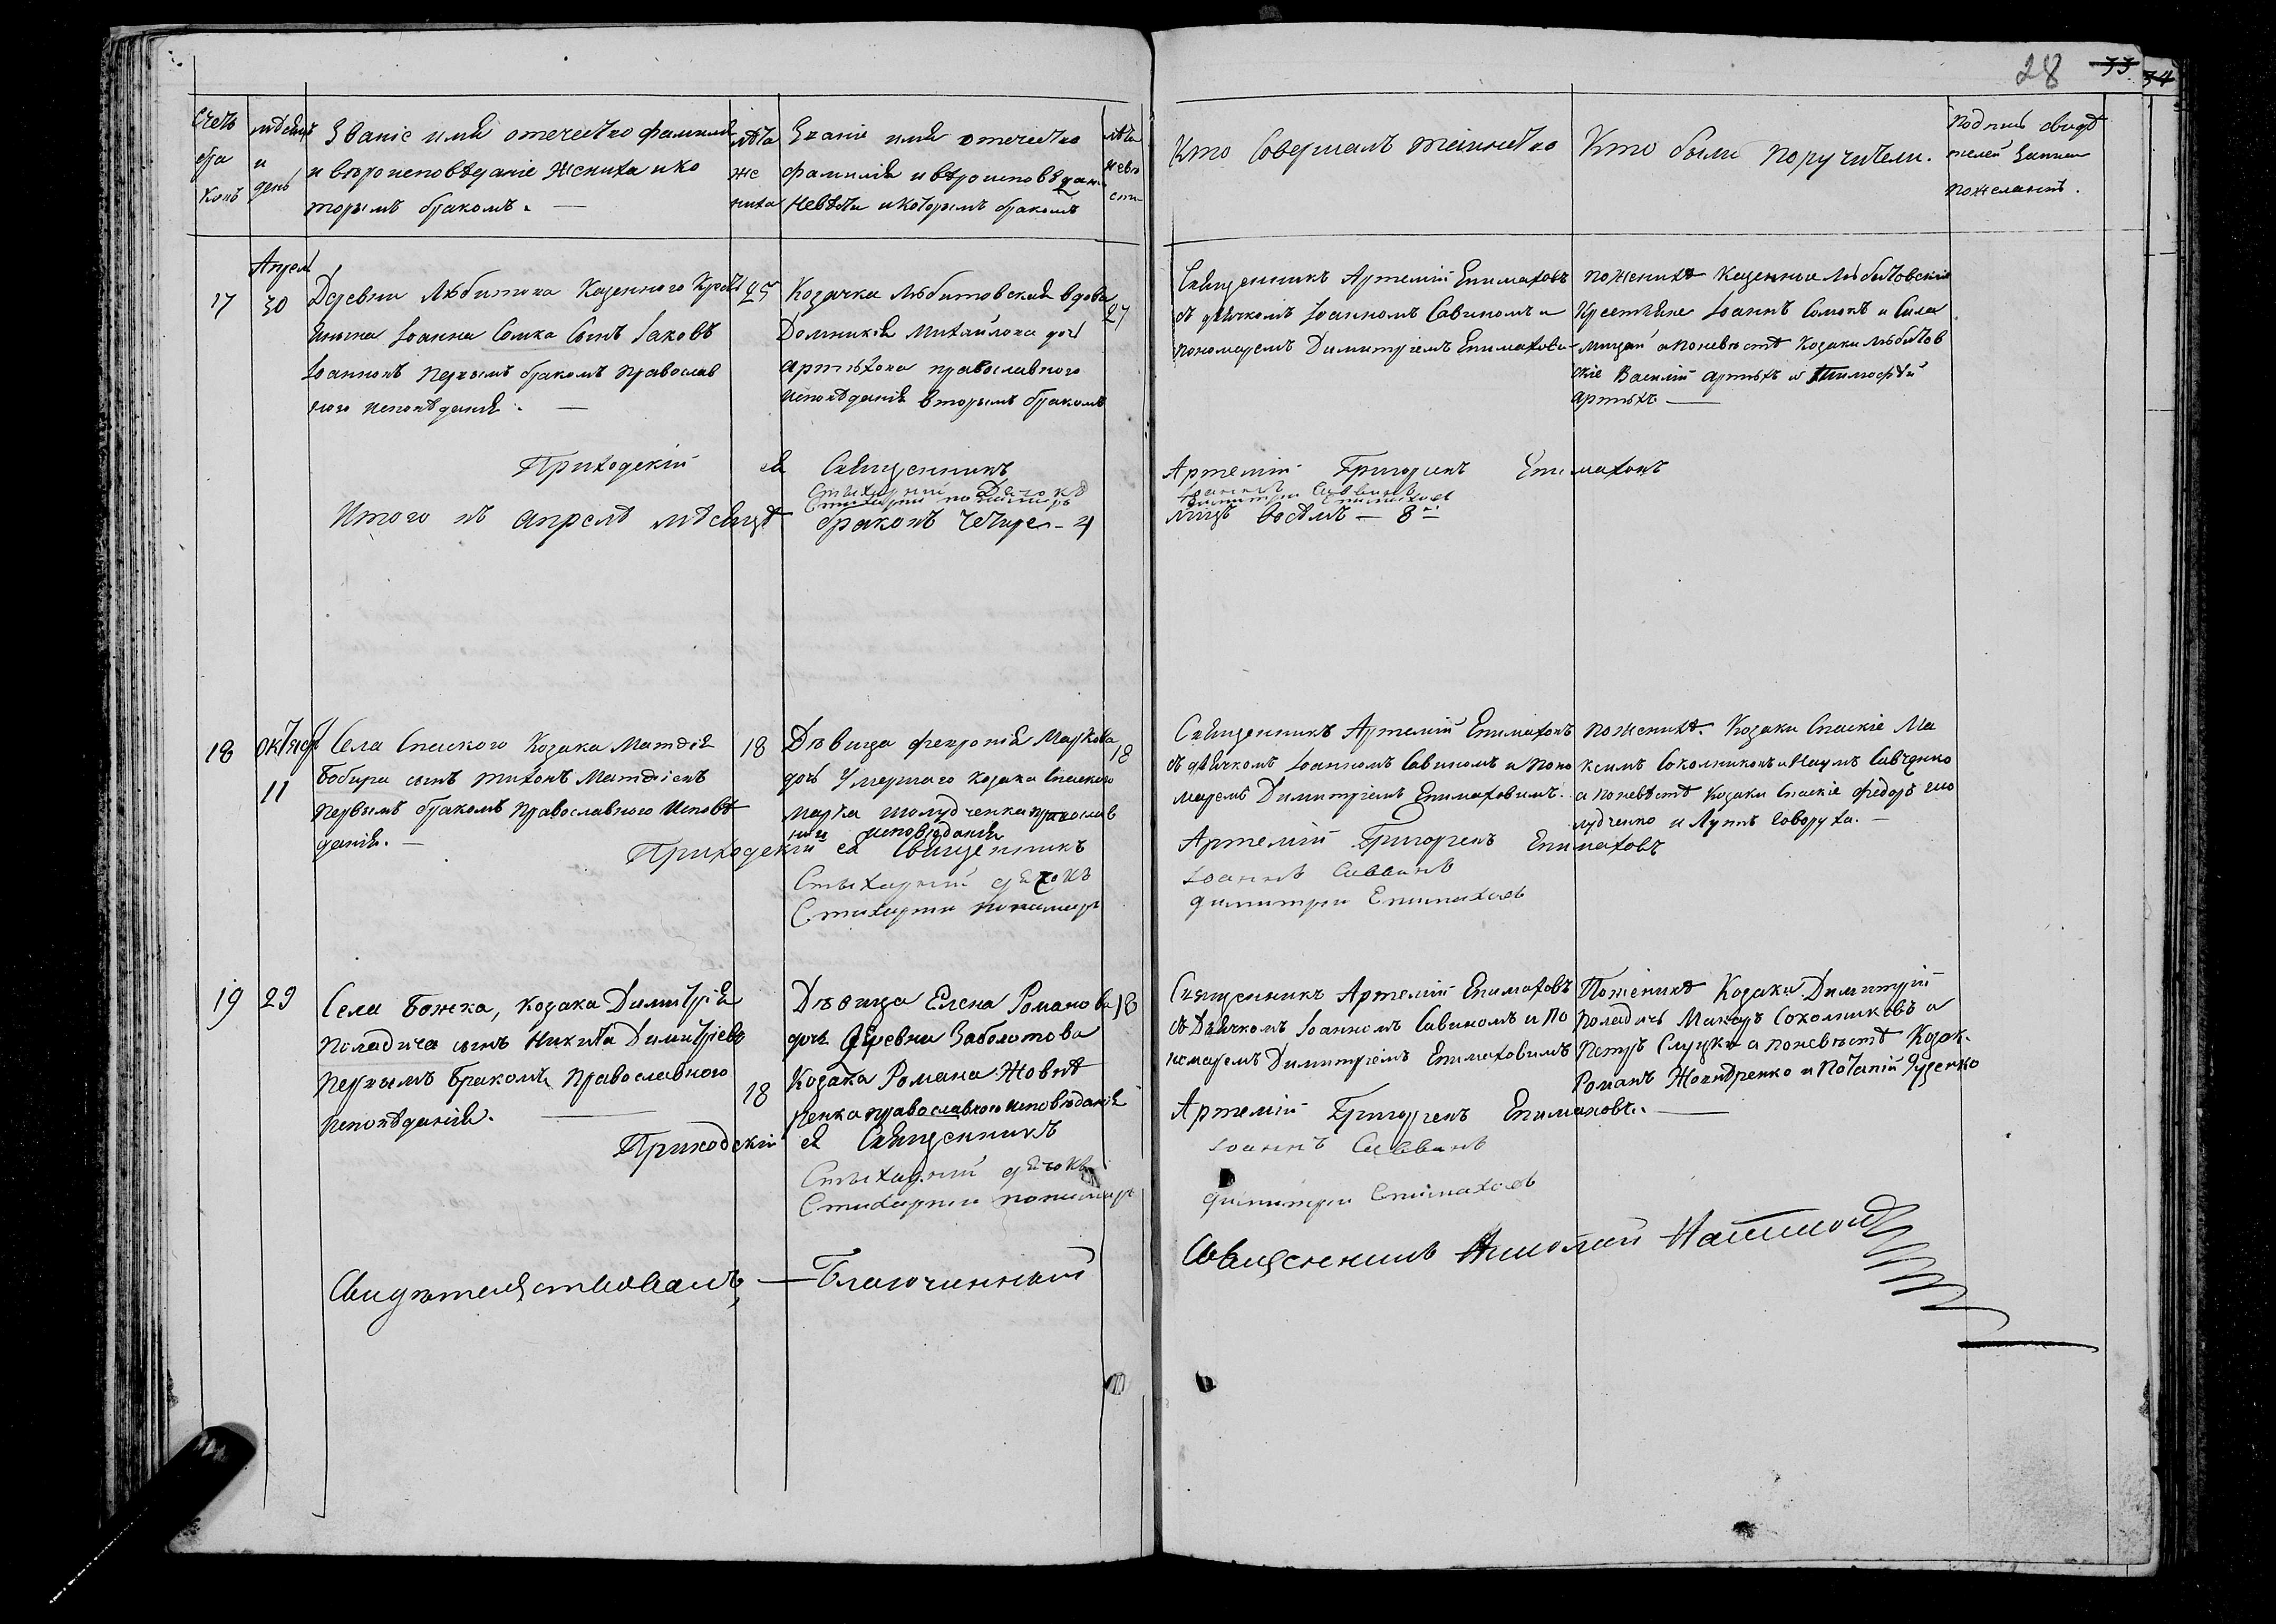 28 33 34
Счетъ браковъ
мѣсяцъ и день
Званіе имя отечество фамилія
и вѣроисповѣданіе жениха и ко
торымъ бракомъ.
лѣта жениха
Званіе имя отечество
фамилія и вѣроисповѣданіе
невѣсты и которымъ бракомъ
лѣта невѣсты
Кто совершалъ таинство
Кто были поручители.
подпись свидѣ
телей записи
по желанію.
17
Апрел
30
Деревни Любитова Казенного Крест
янина Іоанна Сомка сынъ Іаковъ
Іоанновъ первымъ бракомъ православ
ного исповѣданія.
25
Козачка Любитовская вдова
Домникія Михайлова дочь
Артюхова православного
исповѣданія вторымъ бракомъ
27
Священникъ Артемій Епимаховъ
съ дьячкомъ Іоанномъ Савиномъ и
пономаремъ Димитріемъ Епимахови
по женихѣ казенные Любитовскіе
Крестьяне Іоаннъ Сомокъ и Сила
а по невѣстѣ Козаки Любитов
скіе Василій Артюхъ и Тимофѣй
Артюхъ
Приходскій ея Священникъ Артемій Григориевъ Епимаховъ
Стыхарный Дячокъ Іоаннъ Саввинъ
Стихарни пономаръ Димитри Епимахов
Итого въ апрелѣ мѣсяцѣ браковъ четыре - 4 лицъ восѣмъ - 8
18
Октяб
11
Села Спаского Козака Матфія
Бобира сынъ Тихонъ Матфіевъ
первымъ бракомъ православного исповѣ
данія.
18
Дѣвица Февронія Маркова
дочь умершаго козака Спаского
Марка Шолудченка православ
ного исповѣданія
18
Священникъ Артемій Епимаховъ
съ дьячкомъ Іоанномъ Савиномъ и поно
маремъ Димитріемъ Епимаховимъ.
по женихѣ. Козаки Спаскіе Ма
ксимъ Соколниковъ и Наумъ Савченко
а по невѣстѣ Козаки Спаскіе Федоръ Шо
лудченко и Лупъ Говоруха.
Приходскій ея Священникъ Артемій Григориевъ Епимаховъ
Стыхарный дячокъ Іоаннъ Саввинъ
Стихарни пономар Димитри Епимахов
19
29
Села Божка, козака Димитрія
Поладича сынъ Никита Димитріевъ
первымъ бракомъ православного
исповѣданія.
18
Дѣвица Елена Романова
дочь Деревни Заболотова
Козака Романа Жовнѣ
ренка православного исповѣданія
18
Священникъ Артемій Епимаховъ
съ Дьячкомъ Іоанномъ Савиномъ и по
номаремъ Димитріемъ Епимаховимъ
По женихѣ Козаки Димитрій
Поладичь Макаръ Соколниковъ а
Петръ Слуцкі а по невѣстѣ Козак.
Романъ Жовнѣренко и Потапій Руденко
Приходскій ея Священникъ Артемій Григориевъ Епимаховъ.
Стыхарный дячокъ Іоаннъ Саввинъ
Стихарни пономар Димитри Епимахов
Свидѣтельствовалъ, Благочинный Священникъ Николай